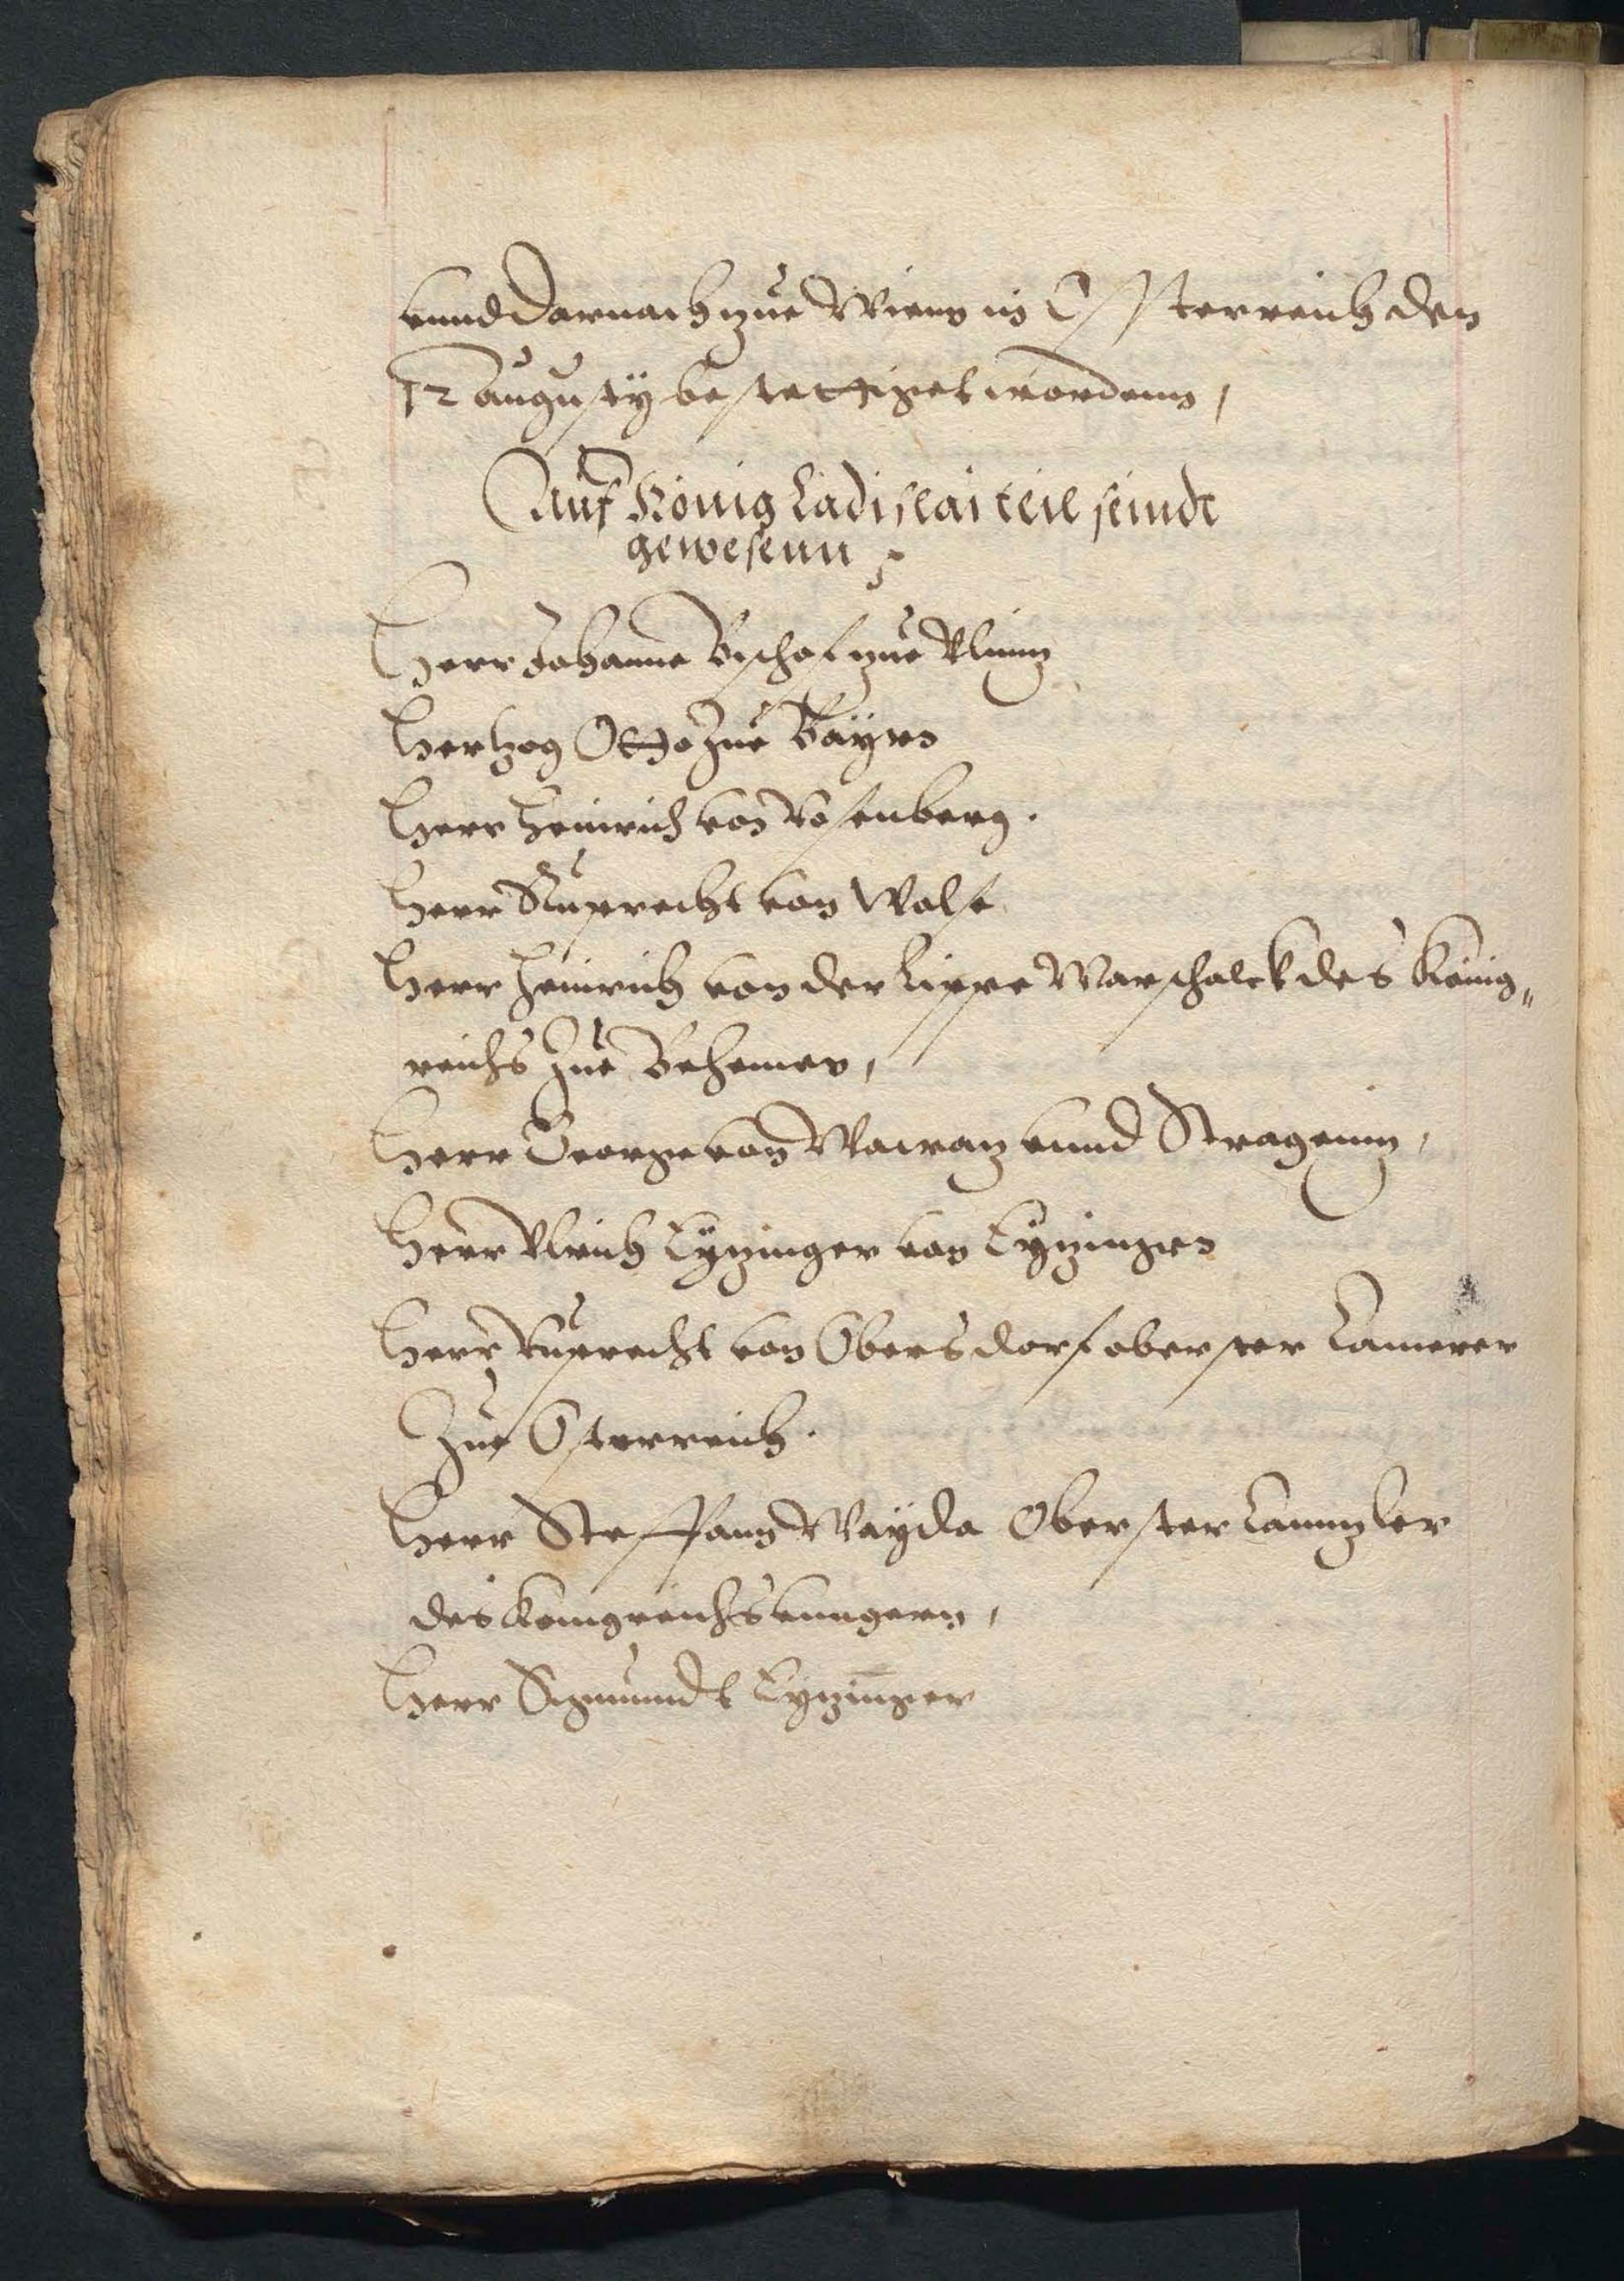 vnnd darnach zue Wienn in Össterreich den
12 augustÿ bestettiget wordenn,
Auf König Ladislai teil seindt
gewesenn
Herr Johanne Bischof zue Vlmuz
Herzog Otto Zue Bayrn
Herr Heinrich von Rosenberg.
Herr Ruprecht von Walse
Herr Heinrich von der Lippe Marschalck des König„
reichs Zue Behemen,
Herr George von vnnd
Herr Vlrich Eyzinger von Eyzingen
Herr Ruprecht von Obersdorf oberster Camerer
Zue Osterreich.
Herr Steffann Wayda Oberster Cannzler
des Konigreichs Vnngern,
Herr Sigmundt Eyzinger